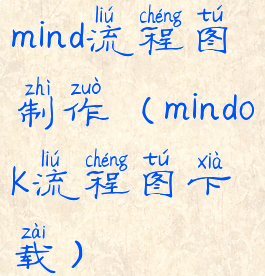 liú chéng tú
mind流程图
zhì zuò
制作（mindo
liú chéng tú xià
K流程图下
zài
载）